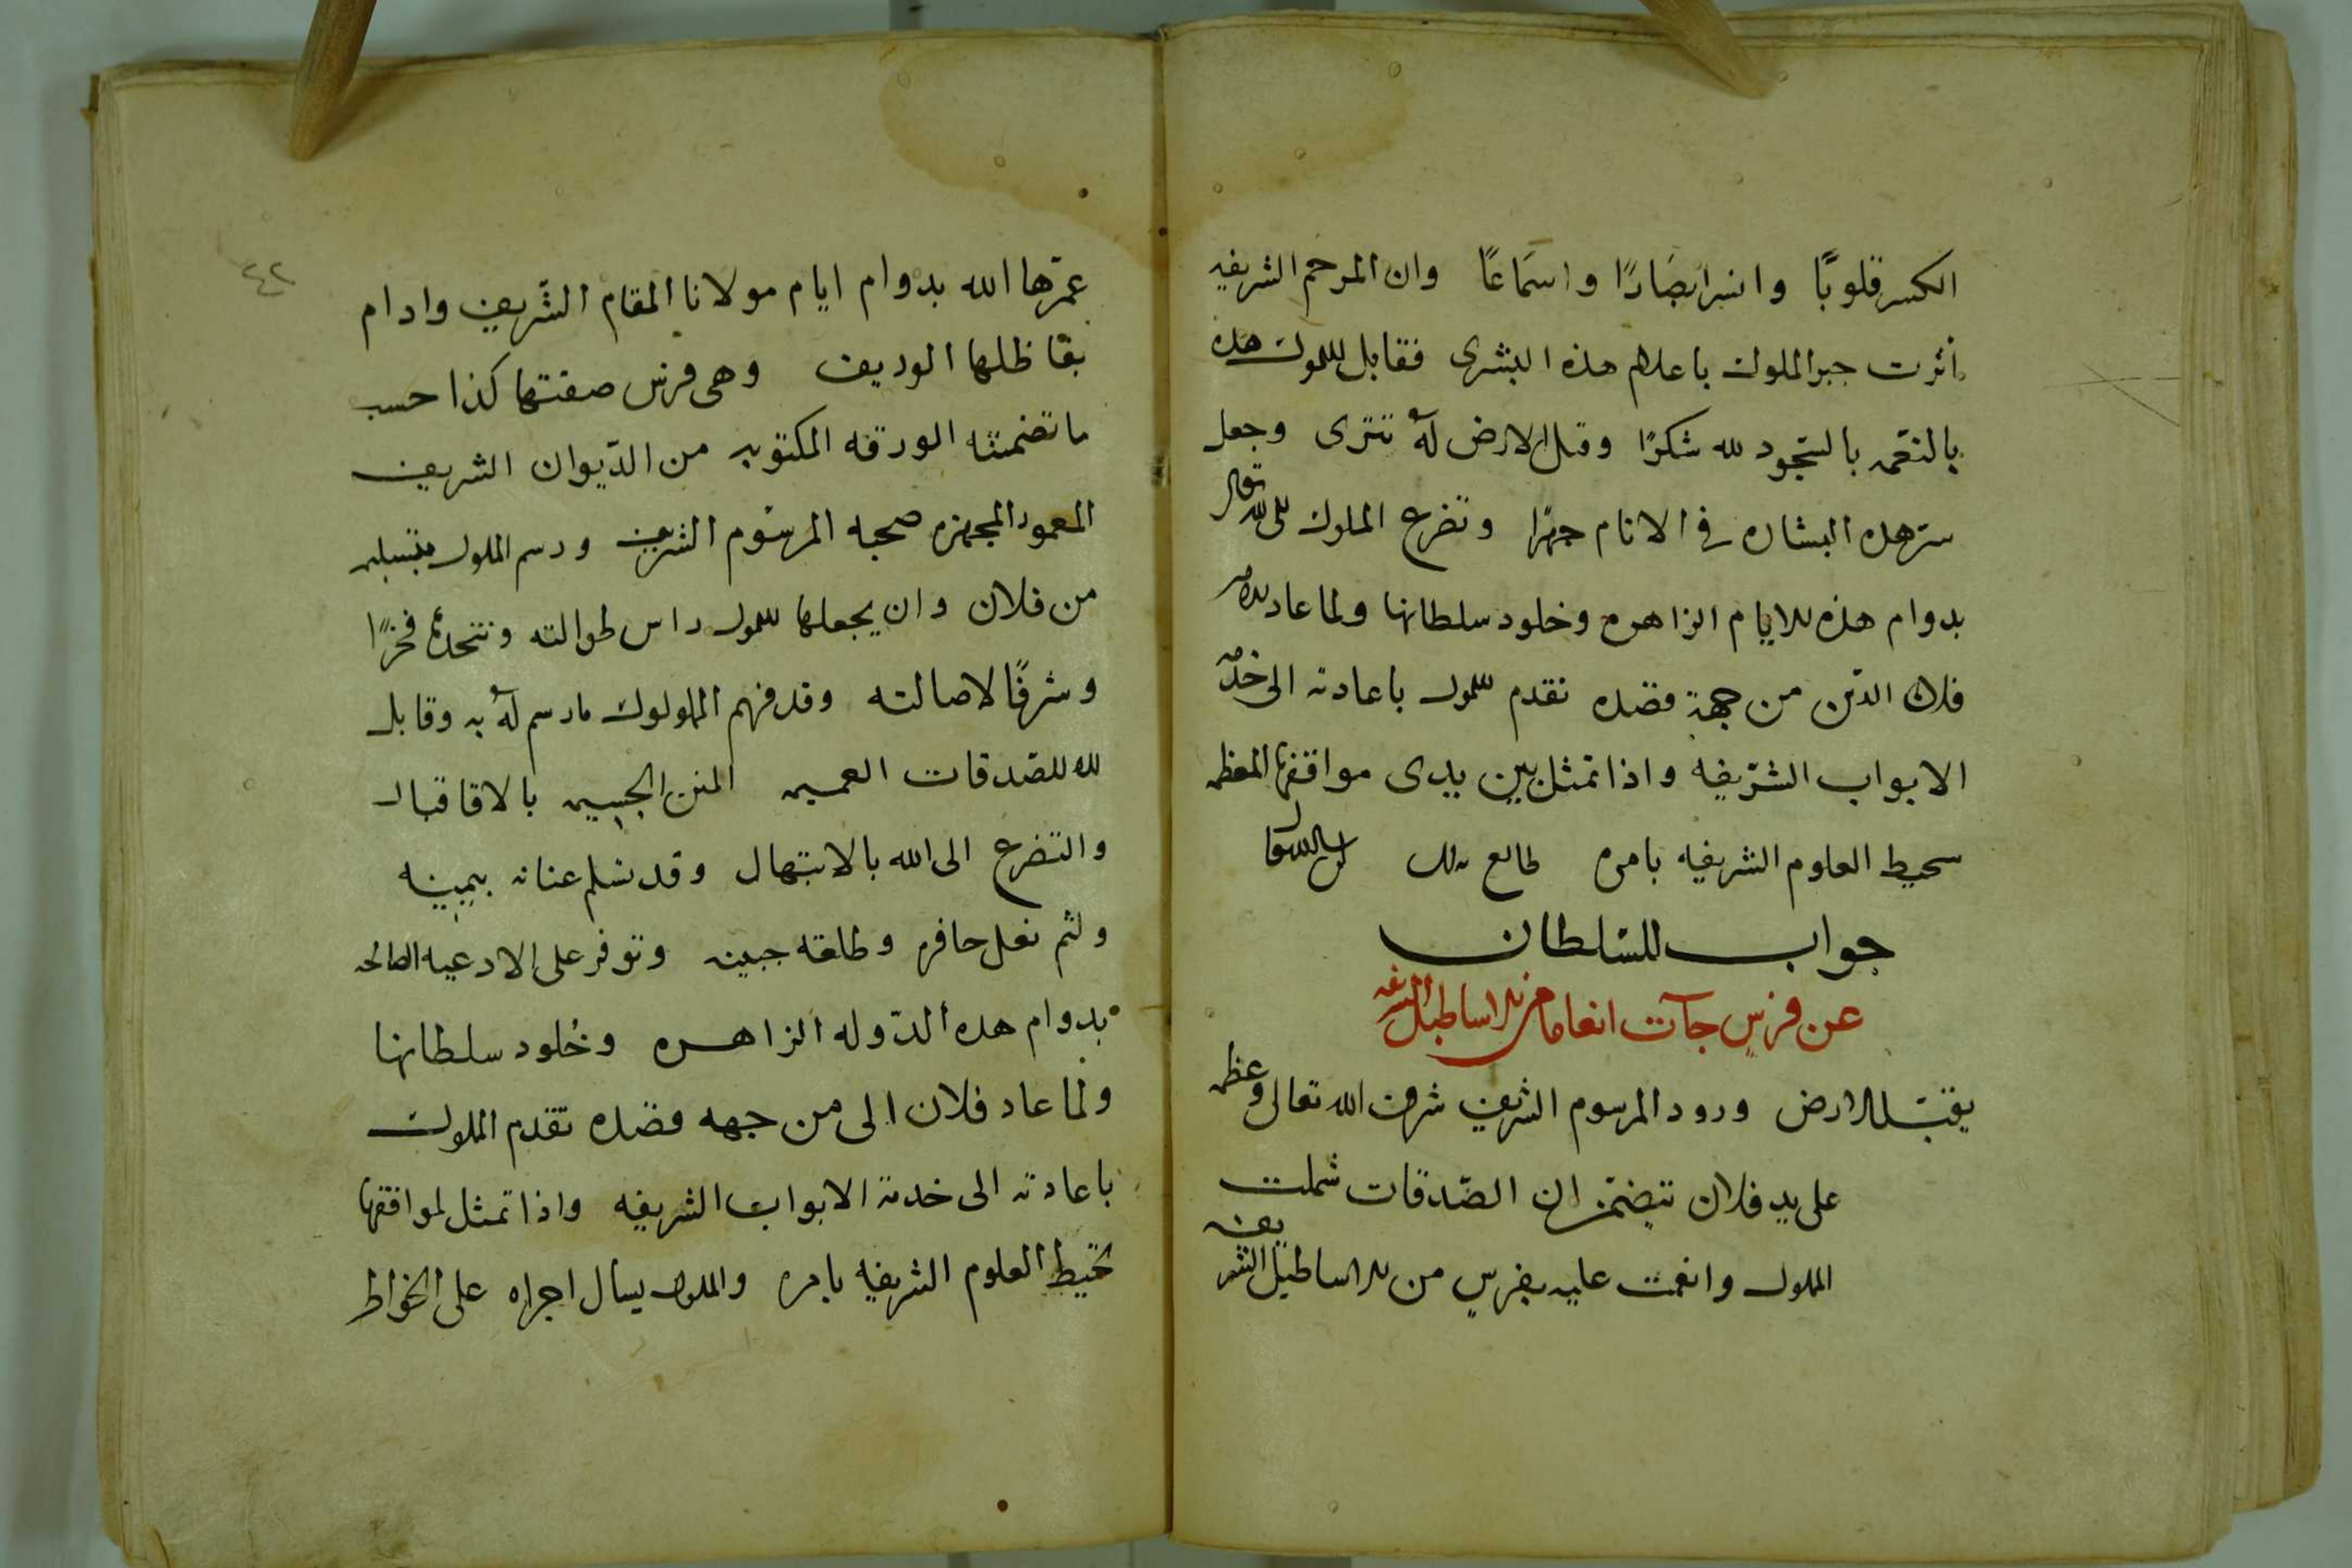 الكسر قلوبًا وانبر ابصارًا واسماعًا وان المرحم الشريفه
اثرت جبر المملوك باعلام هذه البشرى فقابل المملوك هذه
بالنعمه بالسجود لله شكرًا وقبل الارض له تترى وجعل
سر هذه البشاره في الانام جهرًا وتضرع المملوك الى الله تعالى
بدوام هذه الايام الزاهره وخلود سلطانها ولما عاد
فلان الدين من جهة قصده تقدم المملوك باعادته الى خدمه
الابواب الشريفه واذا تمثل بين يدى مواقفها المعظمه
سحيط العلوم الشريفه بامره طالع بذلك
جواب للسلطان
عن فرس جآت انعاما من الاساطبل الشريفه
يقبل الارض ورود المرسوم الشريف شرفه الله تعالى وعظمه
على يد فلان تتضمن ان الصدقات شملت
المملوك وانعمت عليه بفرس من الاساطيل الشريفه
٤٢
عمرها الله بدوام ايام مولانا المقام الشريف وادام
بقا ظلها الوريف وهى فرس صفتها كذا حسب
ما تضمنته الورقه المكتوبه من الديوان الشريف
المعمور المجهزه صحبه المرسوم الشريف ورسم المملوك بتسليمه
من فلان وان يجعلها المملوك راس طوالته ونتخذه فخرًا
وشرفًا لاصالته وقد فهم المملولوك ما رسم له به وقابل
لله للصدقات العميمه المنن الجسيمه بالاقاقبال
والتضرع الى الله بالابتهال وقد تسلم عنانه بيمينه
ولثم نعل حافره وطلعة جبينه وتوفر على الادعيه الصالحه
بدوام هذه الدوله الزاهره وخلود سلطانها
ولما عاد فلان الى من جهه قصده تقدم المملوك
باعادته الى خدمة الابواب الشريفه واذا تمثل لمواقفها
تحيط العلوم الشريفه بامره والمملوك يسال اجراه على الخواطر